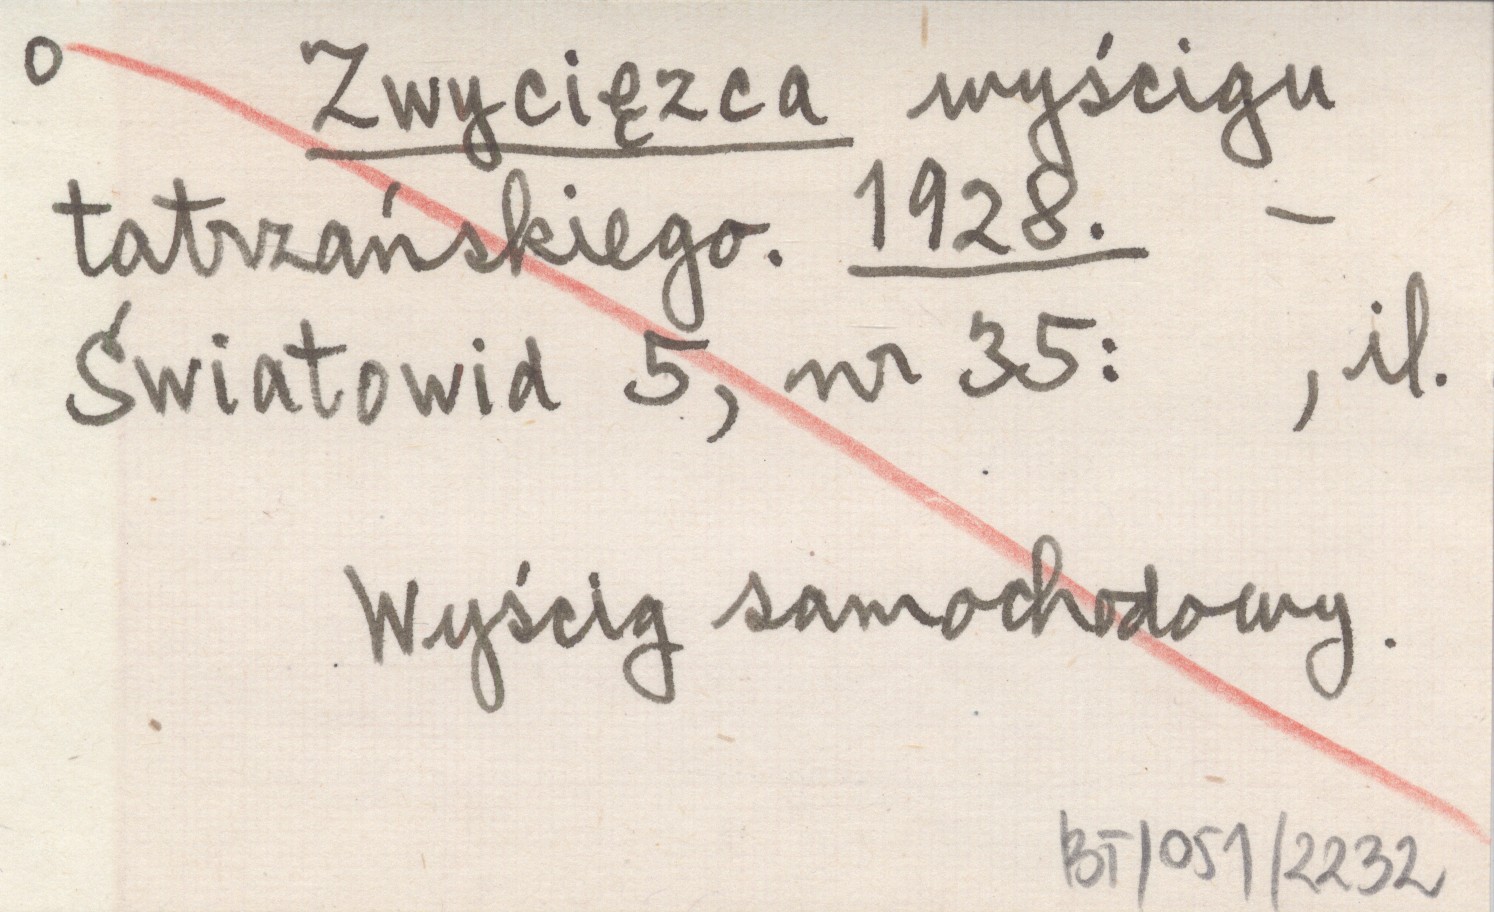 o Zwycięzca wyścigu
tatrzańskiego. 1928. –
Światowid 5, nr 35: , il.
Wyścig samochodowy.
BT/051/2232